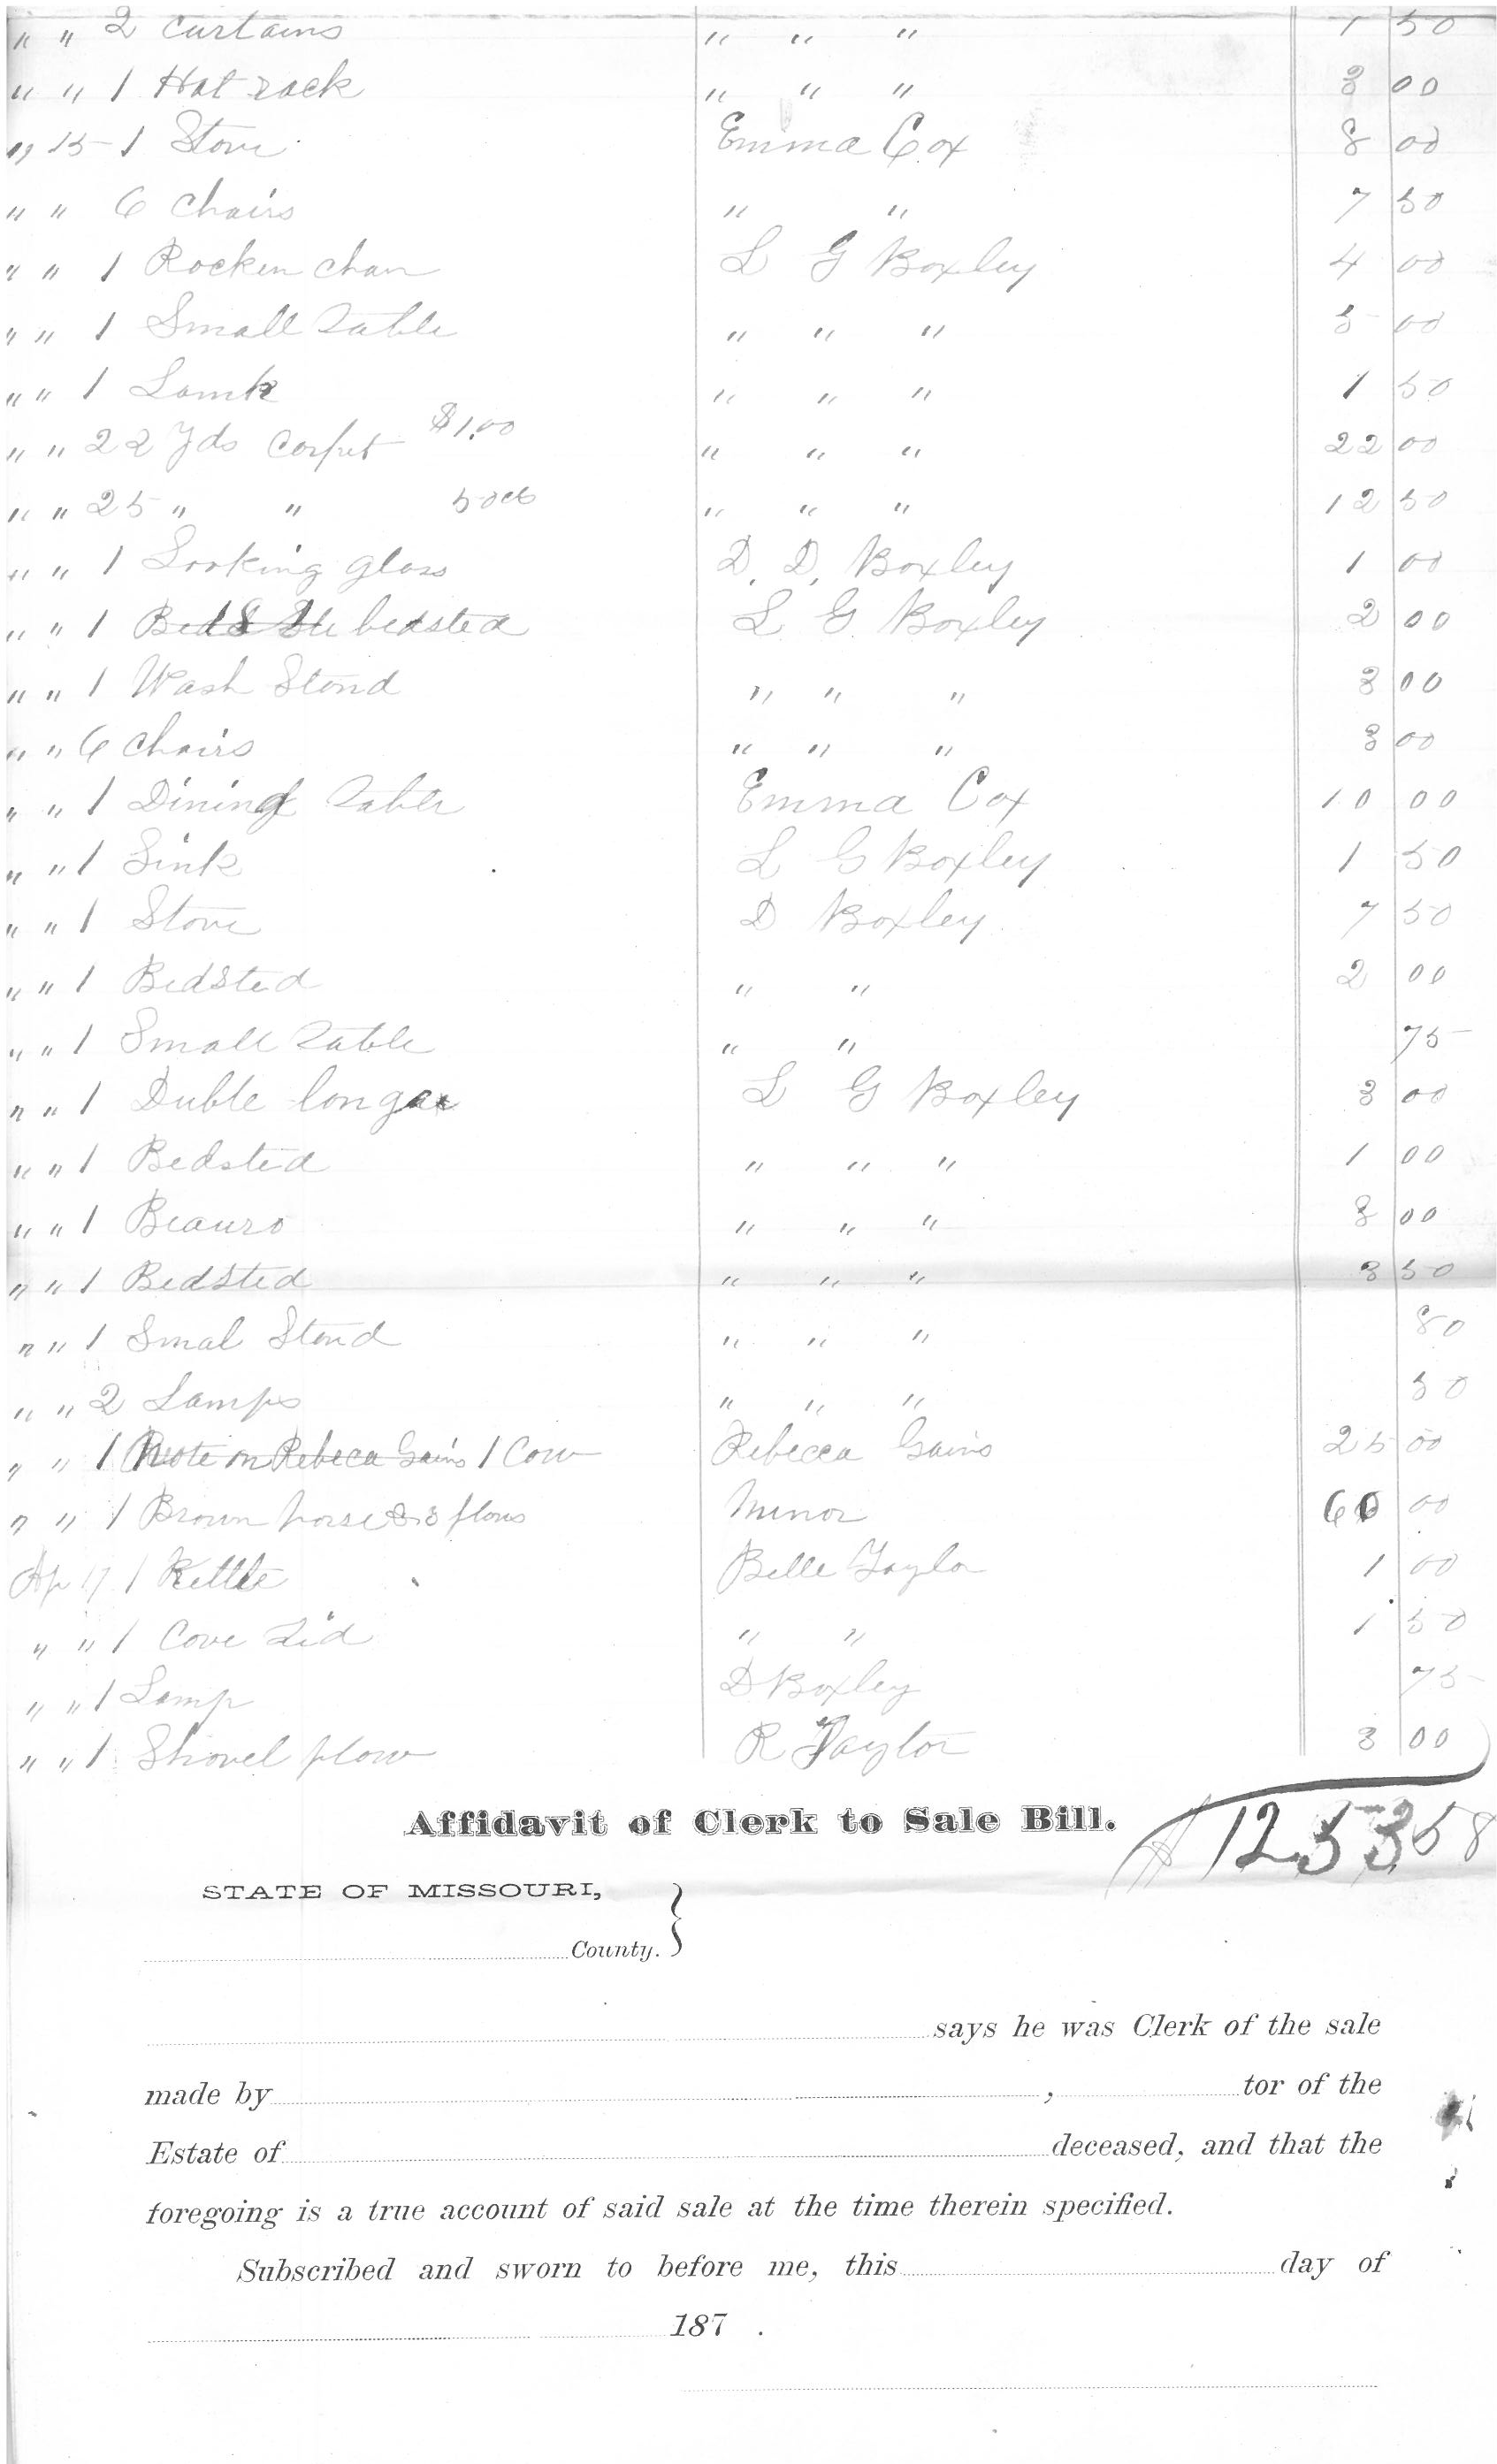 " " 2 Curtains " " " 1 50
" " 1 Hat rack " " " 3 00
" 15 - 1 Stove Emma Cox 8 00
" " 6 Chairs " " 7 50
" " 1 Rocken chair L G Boxley 4 00
" " 1 Small Table " " " 5 00
" " 1 Lamp " " " 1 50
" " 22 Yds Carpet $1.00 " " " 22 00
" " 25 " " 50cts " " " 12 50
" " 1 Looking glass D. D. Boxley 1 00
" " 1 bedsted L. G. Boxley 2 00
" " 1 Wash Stand " " " 3 00
" " 6 Chairs " " " 3 00
" " 1 Dining Table Emma Cox 10 00
" " 1 Sink L G Boxley 1 50
" " 1 Stove D Boxley 7 50
" " 1 Bedsted " " 2 00
" " 1 Small Table " " 75
" " 1 Duble longe L G Boxley 3 00
" " 1 Bedsted " " " 1 00
" " 1 Beauro " " " 3 00
" " 1 Bedsted " " " 3 50
" " 1 Smal Stand " " " 80
" " 2 Lamps " " " 50
" " 1 Note on Rebeca Gains 1 Cow Rebecca Gains 25 00
" " 1 Brown horse & 3 plows Minor 60 00
Ap 17 1 Kettle Belle Taylor 1 00
" " 1 Cove Lid " " 1 50
" " 1 Lamp D Boxley 75
" " 1 Shovel plow R Taylor 3 00
Affidavit of Clerk to Sale Bill. $1253 58
STATE OF MISSOURI,
County. }
says he was Clerk of the sale
made by , tor of the
Estate of deceased, and that the
foregoing is a true account of said sale at the time therein specified.
Subscribed and sworn to before me, this day of
187 .